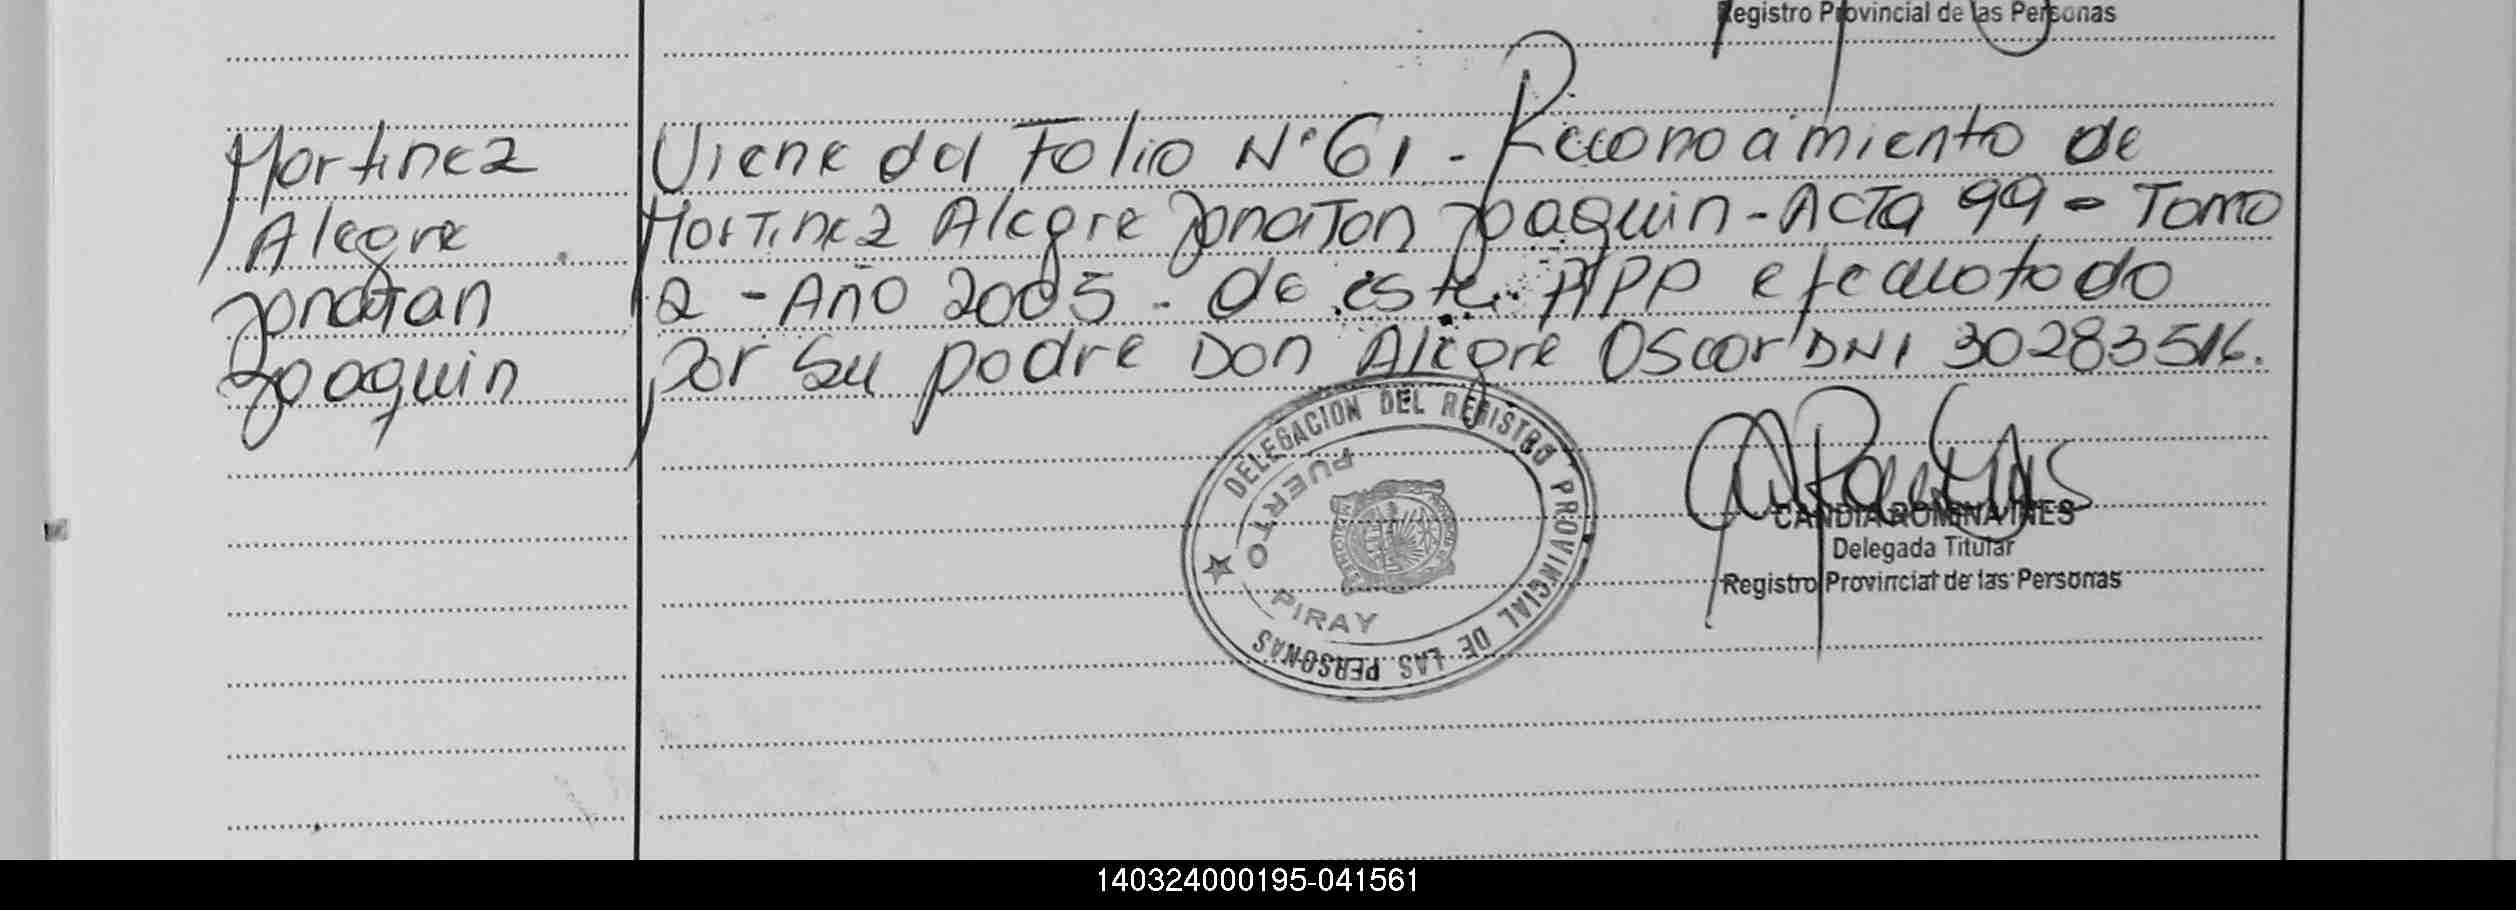 Registro Provincial de las Personas
Martinez
Alegre
Jonatan
Joaquin
Viene del Folio N° 61 - Reconocimiento de
Martinez Alegre Jonatan Joaquin - Acta 99 - Tomo
2 - Año 2005 - de este RPP efectuado
por su padre Don Alegre Oscar DNI 30283516.
DELEGACION DEL REGISTRO PROVINCIAL DE LAS PERSONAS
PUERTO
PIRAY
CANDIA ROMINA INES
Delegada Titular
Registro Provincial de las Personas
140324000195-041561